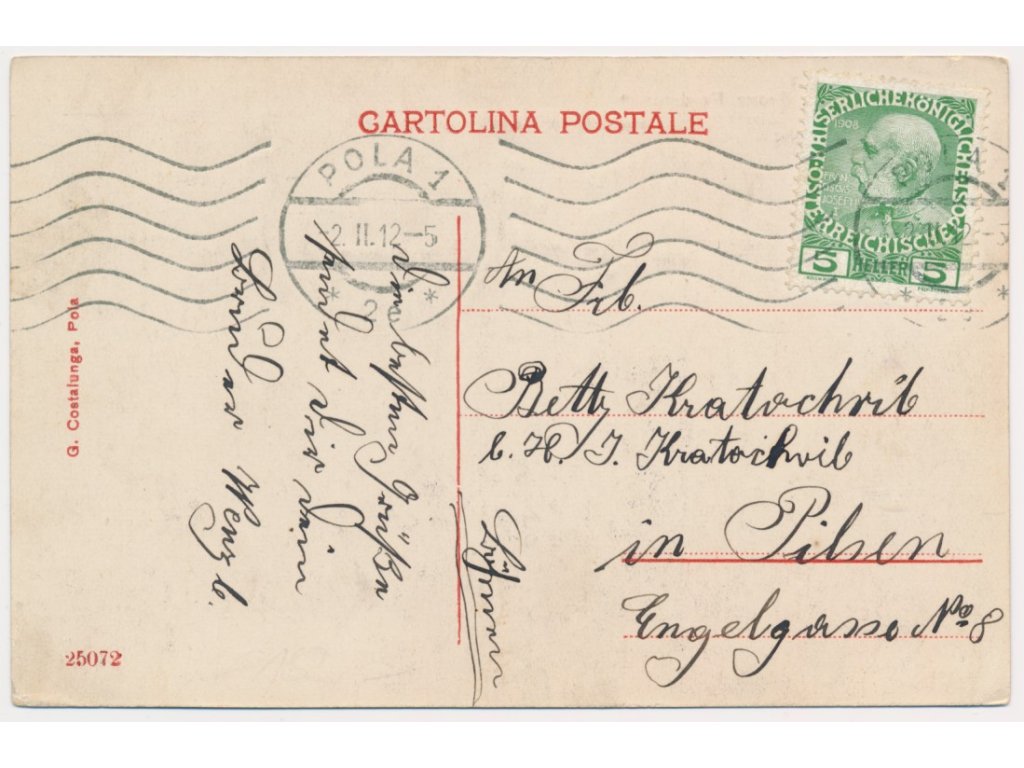 CARTOLINA POSTALE
POLA 1
2. II. 12-5
* 2 *
KAISERLICHE KÖNIGLICHE ÖSTERREICHISCHE POST
1908
5 HELLER 5
G. Costalunga, Pola
25072
Die besten Grüßen
sendet Dir dein
Wenzl.
An Frl.
Betty Kratochvil
b. H. J. Kratochvil
in Pilsen
Engelgasse No 8
Böhmen